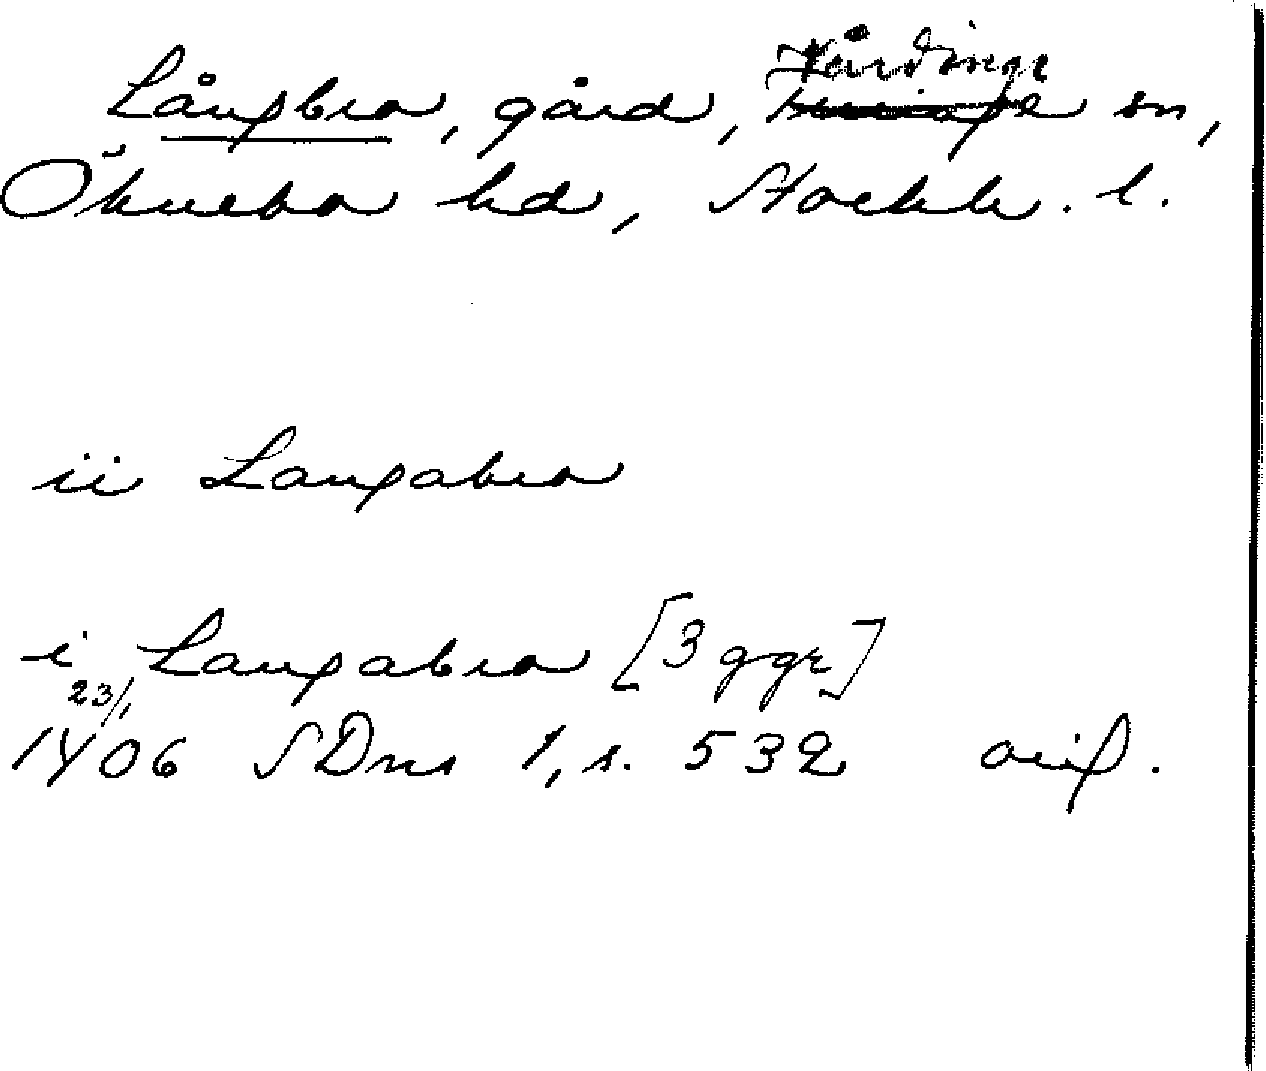 Långbro, gård, Vårdinge sn,
Öknebo hd, Stockh. l.
ii Langabro
i Langabro [3 ggr]
23/1
1406 SDns 1, s. 532 orig.